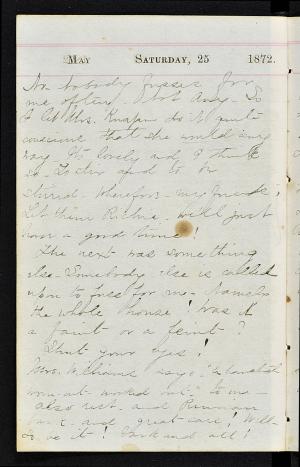 May Saturday, 25 1872.
No body fusses for
me often. Not any. So
I let Mrs. Knapp do it quite
conscious that she would any
way. It's lovely and I think
so. and to be
stirred. Wherefore my friends,
Let them Richie. We'll just
have a good time!
The next was something
else. Somebody else is called
upon to fuss for me. Namely
the whole house! Was it
a faint or a feint?
Shut your eyes!
Mrs. Williams says
worn out worked out. to me
also rest. and
and great care! Well
it! Dark and all!